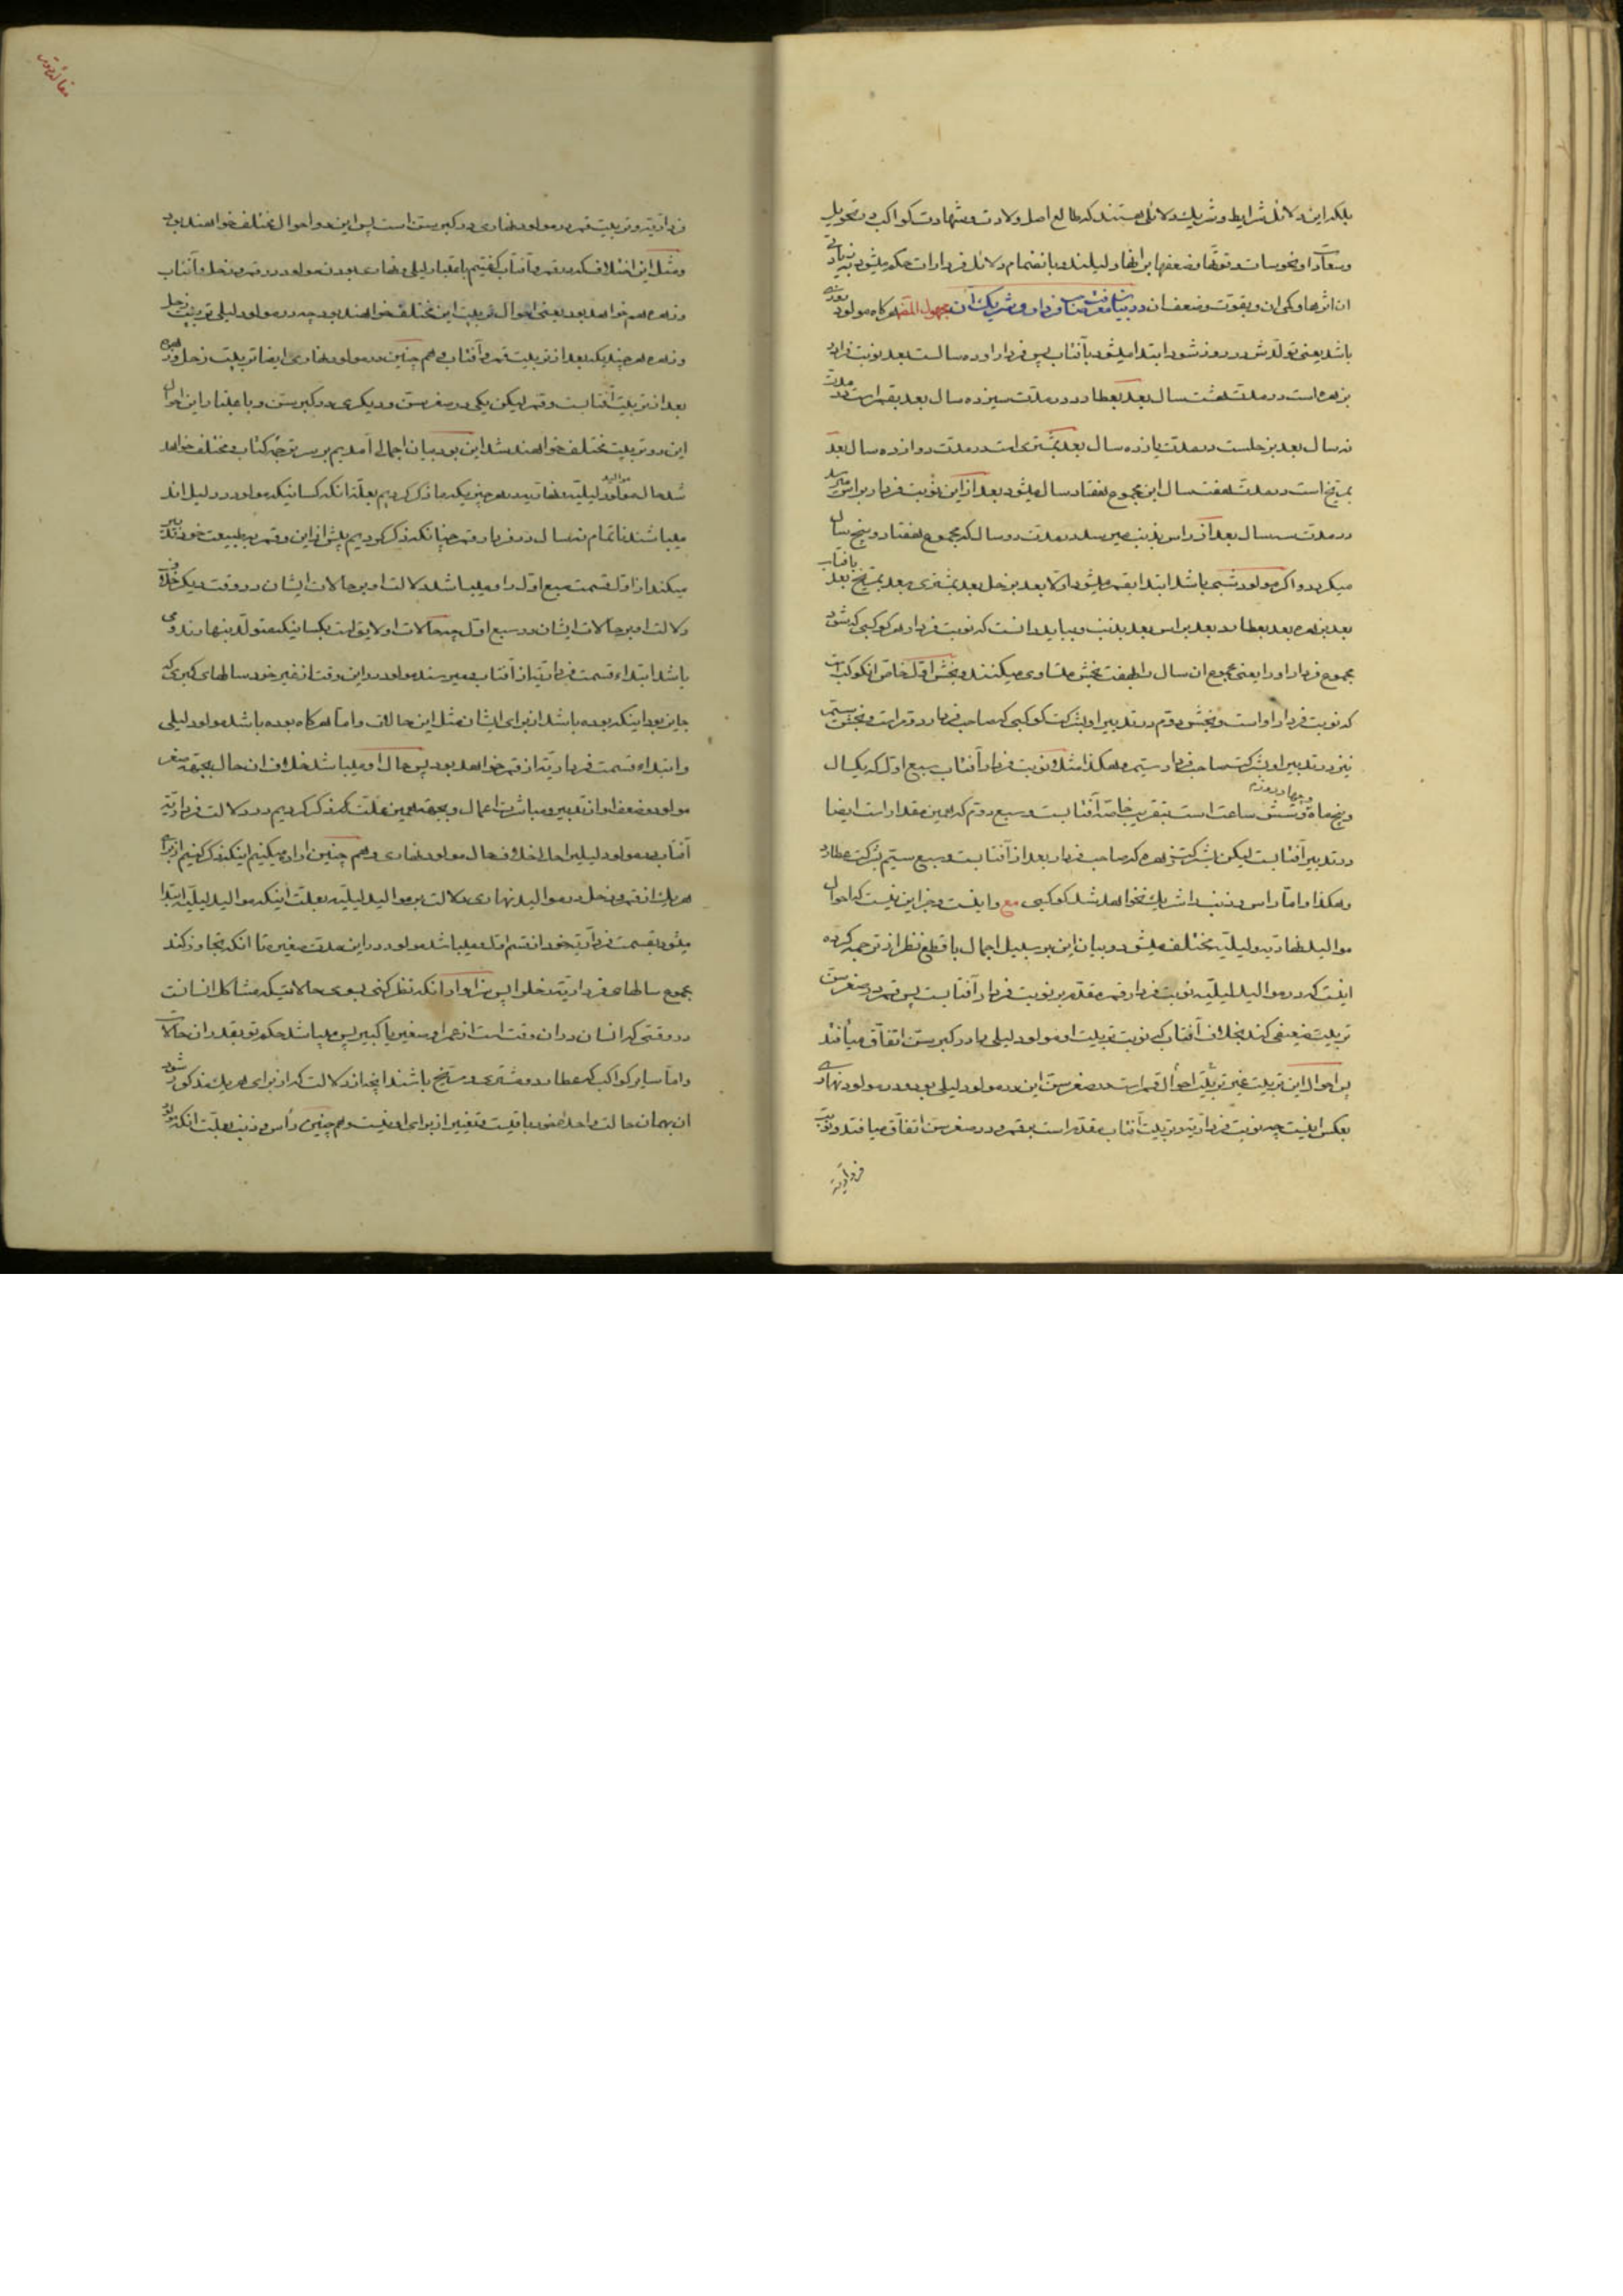 بلکه این دلائل شرایط و شریک دلائلی هستند که طالع اصل ولادت و شهادت کواکب در تحویل
و سعادات و نحوسات و قوتها و ضعفها بر انها دلیلند و بانضمام دلائل فردارات حکم میشود بزیادتی
ان اثرها و کمی ان و بقوت و ضعف ان در بیان فردار و شریک آن مجهول المصنف هر کاه مولود روزی
باشد یعنی تولدش در روز شود ابتدا میشود بآفتاب پس فردار او ده سالست بعد نوبت فردار
بزهره است در مدت هشت سال بعد بعطارد در مدت سیزده سال بعد بقمر است در مدت
نه سال بعد بزحلست در مدت یازده سال بعد بمشتری است در مدت دوازده سال بعد
بمریخ است در مدت هفت سال این مجموع هفتاد سال میشود بعد از این نوبت فردار براس میرسد
در مدت سه سال بعد از راس بذنب میرسد در مدت دو سال که مجموع هفتاد و پنج سال
میکردد و اکر مولود شبی باشد ابتدا بقمر میشود اولا بعد بزحل بعد بمشتری بعد بمریخ بعد بافتاب
بعد بزهره بعد بعطارد بعد براس بعد بذنب و بباید دانست که نوبت فردار هر کوکبی که شود
مجموع فردار او را یعنی مجموع ان سال را بهفت بخش متساوی میکنند و بخش اول خاص انکوکب است
که نوبت فردار او است و بخش دوم در تدبیر او بشرکت کوکبی که صاحب فردار دوم است و بخش سیم
نیز در تدبیر او بشرکت صاحب فردار سیم و هکذا مثلا نوبت فردار آفتاب سبع اول که یکسال
و پنجماه و چهار روز و شش ساعت است بتقریب خاصه آفتابست و سبع دوم که همین مقدار است ایضا
در تدبیر آفتابست لیکن بشرکت زهره که صاحب فردار بعد از آفتابست و سبع سیم بشرکت عطارد
و هکذا و اما راس و ذنب را شریک نخواهد شد کوکبی مع و این نیست که احوال
موالید نهاریه و لیلیه مختلف میشود و بیان این بر سبیل اجمال با قطع نظر از ترجمه کرده
اینست که در موالید لیلیه نوبت فردار قمر مقدم بر نوبت فردار آفتابست پس قمر در صغر سن
تربیت ضعیفی کند بخلاف آفتاب که نوبت تربیت او مولود لیلی را در کبر سن اتفاق میافتد
پس احوال این تربیت غیر تربیت احوال قمر است در صغر سن این در مولود لیلی بود و در مولود نهاری
بعکس اینست چه نوبت فرداریه و تربیت آفتاب مقدم است بقمر و در صغر سن اتفاق میافتد و نوبت
فرداریه
فرداریه و تربیت قمر در مولود نهاری در کبر سن است پس این دو احوال مختلف خواهند بود
و مثل این اختلاف که در قمر و آفتاب کفتیم باعتبار لیلی و نهاری بودن مولود در قمر و زحل و آفتاب
و زهره هم خواهد بود یعنی احوال تربیت این مختلف خواهند بود چه در مولود لیلی تربیت زحل
و زهره هر چند یکی بعد از تربیت قمر و آفتاب و هم چنین در مولود نهاری ایضا تربیت زحل و زهره
بعد از تربیت آفتابست و قمر لیکن یکی در صغر سن و دیکری در کبر سن و باعتبار این احوال
این دو تربیت مختلف خواهند شد این بود بیان اجمالی آمدیم بر سر ترجمه کتاب و مختلف خواهد
شد حال موالید لیلیه و نهاریه در هر چیزیکه ما ذکر کردیم بعلت انکه کسانیکه مولود در لیل اند
میباشند تا تمام نه سال در فردار قمر چنانکه ذکر کردیم پیش از این و قمر بر طبیعت خود تدبیر
میکند از اول قسمت سبع اول را و میباشد دلالت او بر حالات ایشان در وقت دیکر خلاف
دلالت او بر حالات ایشان در سبع اول چه حالات اولایق است بکسانیکه متولد بنهارند و می
باشد ابتداء قسمت فرداریه از آفتاب و میرسند مولود در این وقت از غیر خود سالهای کبری که
جایز بود اینکه بوده باشد از برای ایشان مثل این حالات و اما هر کاه بوده باشد مولود لیلی
و ابتداء قسمت فرداریه از قمر خواهد بود پس حال او میباشد خلاف ان حال بجهة صغر
مولود و ضعف او از تدبیر و مباشرت اعمال و بجهة همین علت که ذکر کردیم در دلالت فرداریه
آفتاب در مولود لیلی احوال خلاف حال مولود نهاری و هم چنین اراده میکنیم اینکه ذکر کنیم از برای
هر یک از قمر و زحل در موالید نهاری دلالت بر موالید لیلیه بعلت اینکه موالید لیلیه ابتدا
میشود بقسمت فرداریه خود از قسم اول و میباشد مولود در این مدت صغیر تا انکه تجاوز کند
مجموع سالهای فرداریه زحل را پس سزاوار انکه نظر کنی بسوی حالاتیکه مشاکل انسانست
در وقتی که انسان در ان وقت است از عمر او صغیر یا کبیر پس میباشد حکم تو بقدر ان حالات
و اما سایر کواکب که عطارد و مشتری و مریخ باشند انچه از دلالت که از برای هر یک مذکور شود
ان بهمان حالت واحده خود باقیست و تغییر از برای او نیست و هم چنین راس و ذنب بعلت انکه مولود